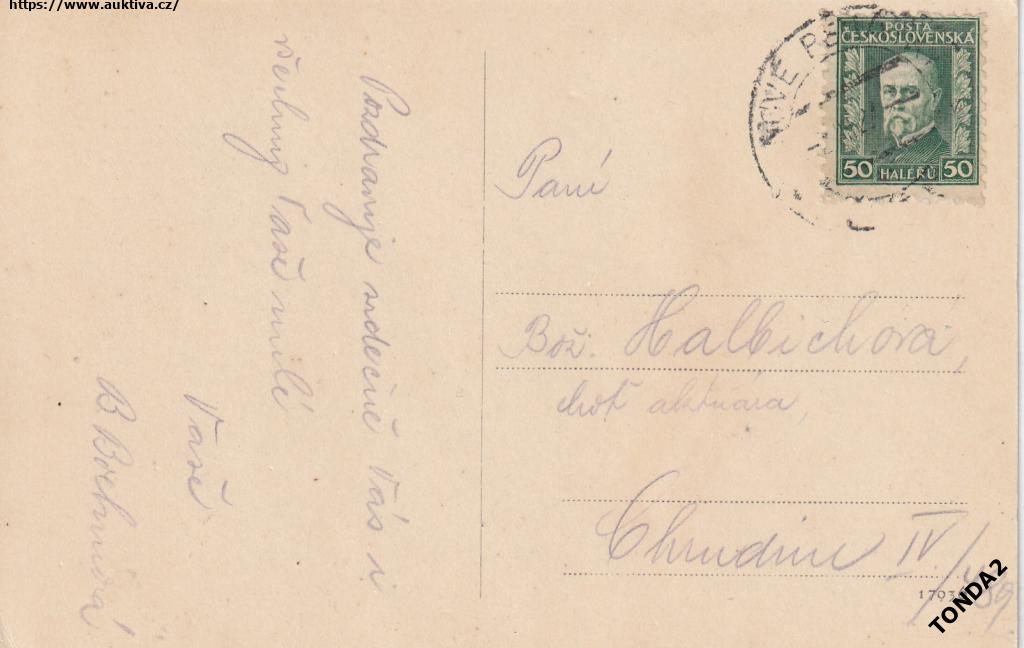 https://www.auktiva.cz/
Pozdravuje srdečně Vás i
všechny Vaše milé
Vaše
POSTA
ČESKOSLOVENSKÁ
50 HALÉŘŮ 50
Paní
Bož. Halbichová,
choť aktuára,
Chrudim IV/
1793
TONDA2